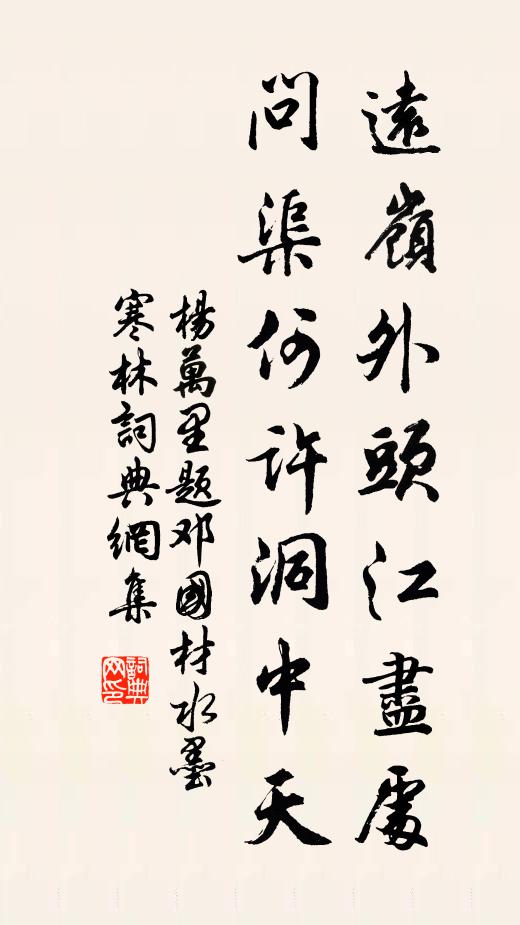 遠嶺外頭江盡處
問渠何許洞中天
楊萬里題邓國材水墨
寒林詞典網集
詞典网印